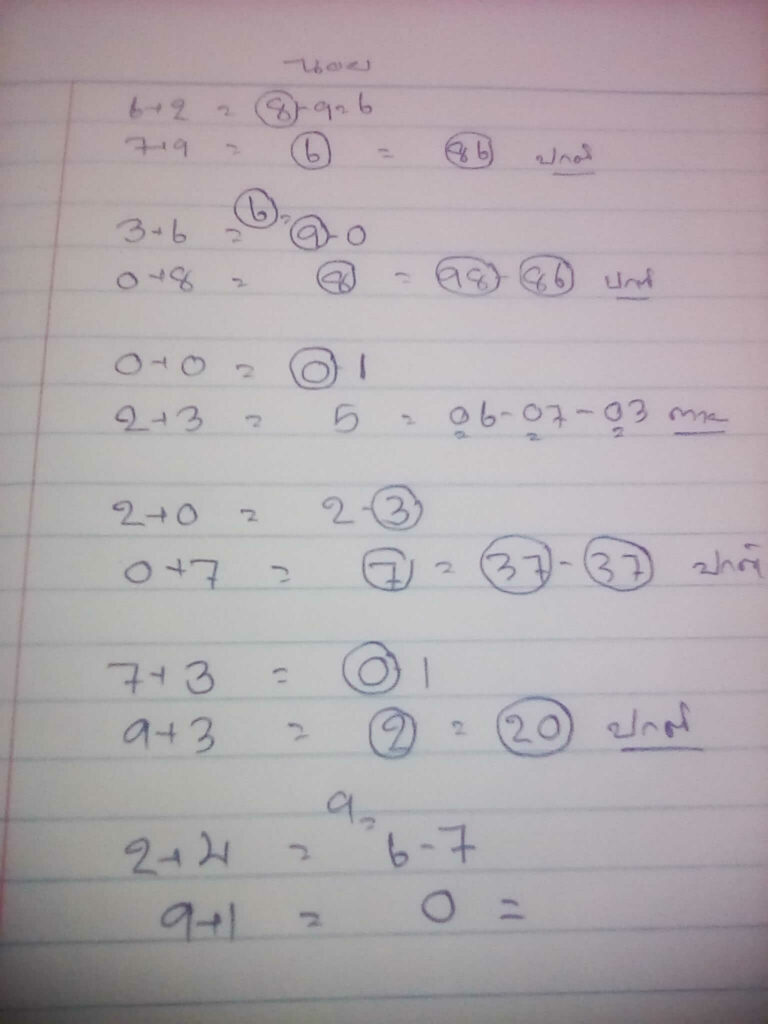 6+2 = 8-9=6
7+9 = 6 = 86
3+6 = 6= 9-0
0+8 = 8 = 98-86
0+0 = 0-1
2+3 = 5 = 06-07-03
2+0 = 2-3
0+7 = 7 = 37-37
7+3 = 0 1
9+3 = 2 = 20
9=
2+4 = 6-7
9+1 = 0 =